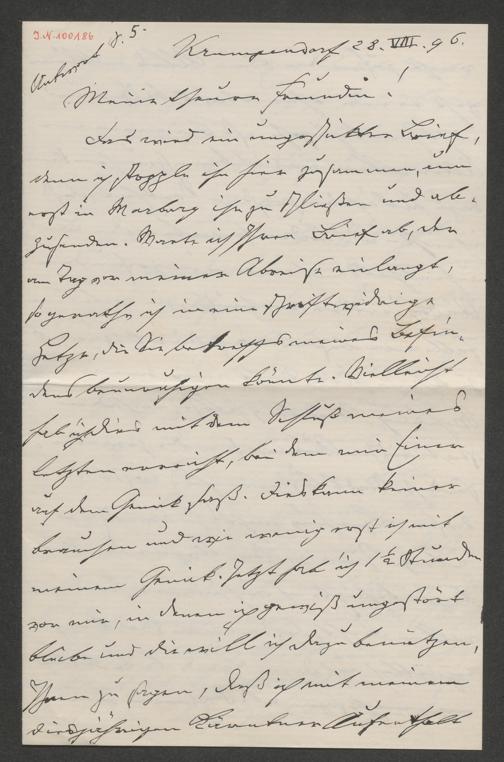 J.N. 100186
Antwort z. 5.
Krumpendorf 28. VIII. 96.
Meine theure Freundin!
Das wird ein ungeschickter Brief,
denn ich stopple ihn hier zusammen, um
erst in Marburg ihn zu schließen und ab-
zusenden. Warte ich Ihren Brief ab, der
am Tag vor meiner Abreise einlangt,
so gerathe ich in eine schriftwidrige
Hetze, die Sie betreffs meines Befin-
dens beunruhigen könnte. Vielleicht
hab ich dies mit dem Schluß meines
letzten erreicht, bei dem mir Einer
auf dem Genick saß. Dies kann keiner
brauchen und wie wenig erst ich mit
meinem Genick. Jetzt hab ich 1½ Stunden
vor mir, in denen ich gewiß ungestört
bleibe und die will ich dazu benützen,
Ihnen zu sagen, daß ich mit meinem
diesjährigen Kärntner Aufenthalt